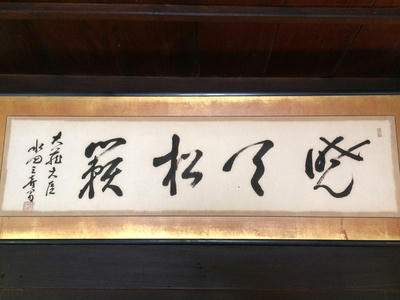 暁天松籟
大蔵大臣
水田三喜男